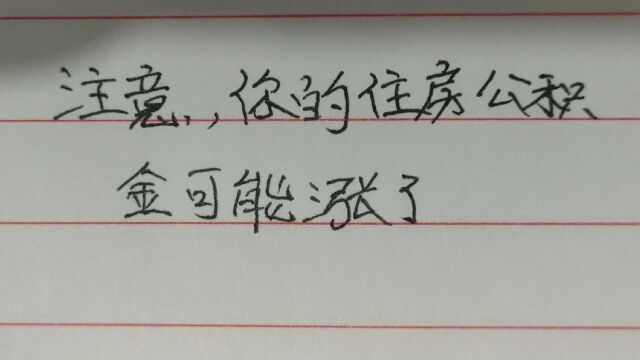 注意,,你的住房公积
金可能涨了